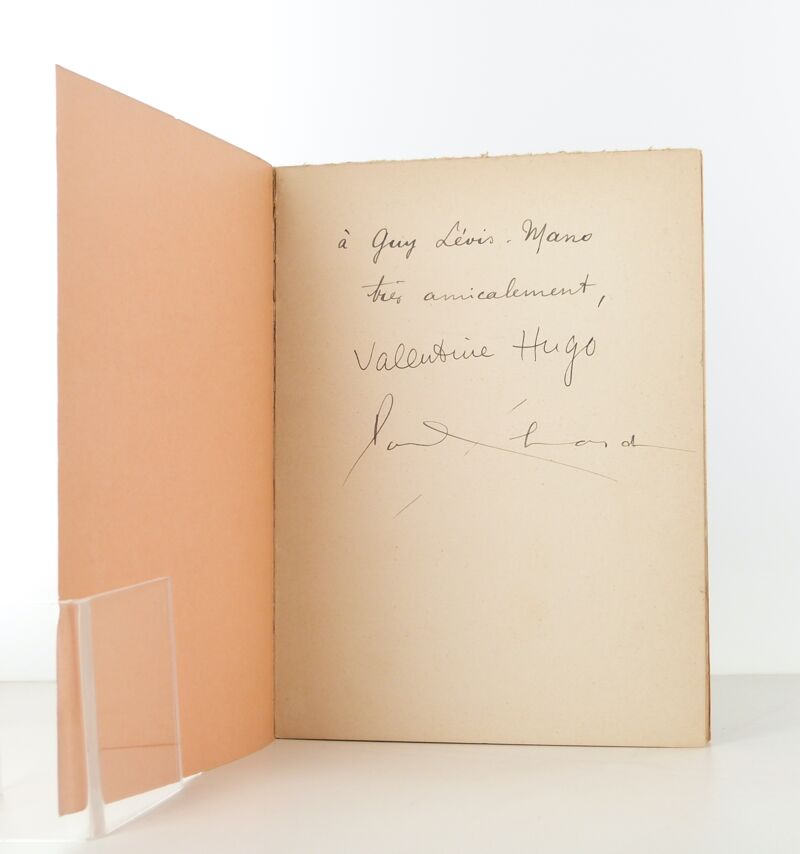 à Guy Lévis-Mano
très amicalement,
Valentine Hugo
Paul Éluard